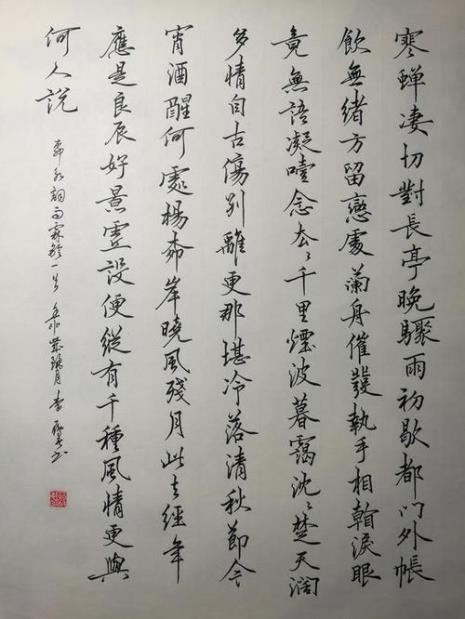 寒蟬凄切對長亭晚驟雨初歇都門外帳
飲無緒方留戀處蘭舟催發執手相看淚眼
竟無語凝噎念去〻千里煙波暮靄沈〻楚天闊
多情自古傷別離更那堪冷落清秋節今
宵酒醒何處楊柳岸曉風殘月此去經年
應是良辰好景虛設便縱有千種風情更與
何人說
柳永詞雨霖鈴一首